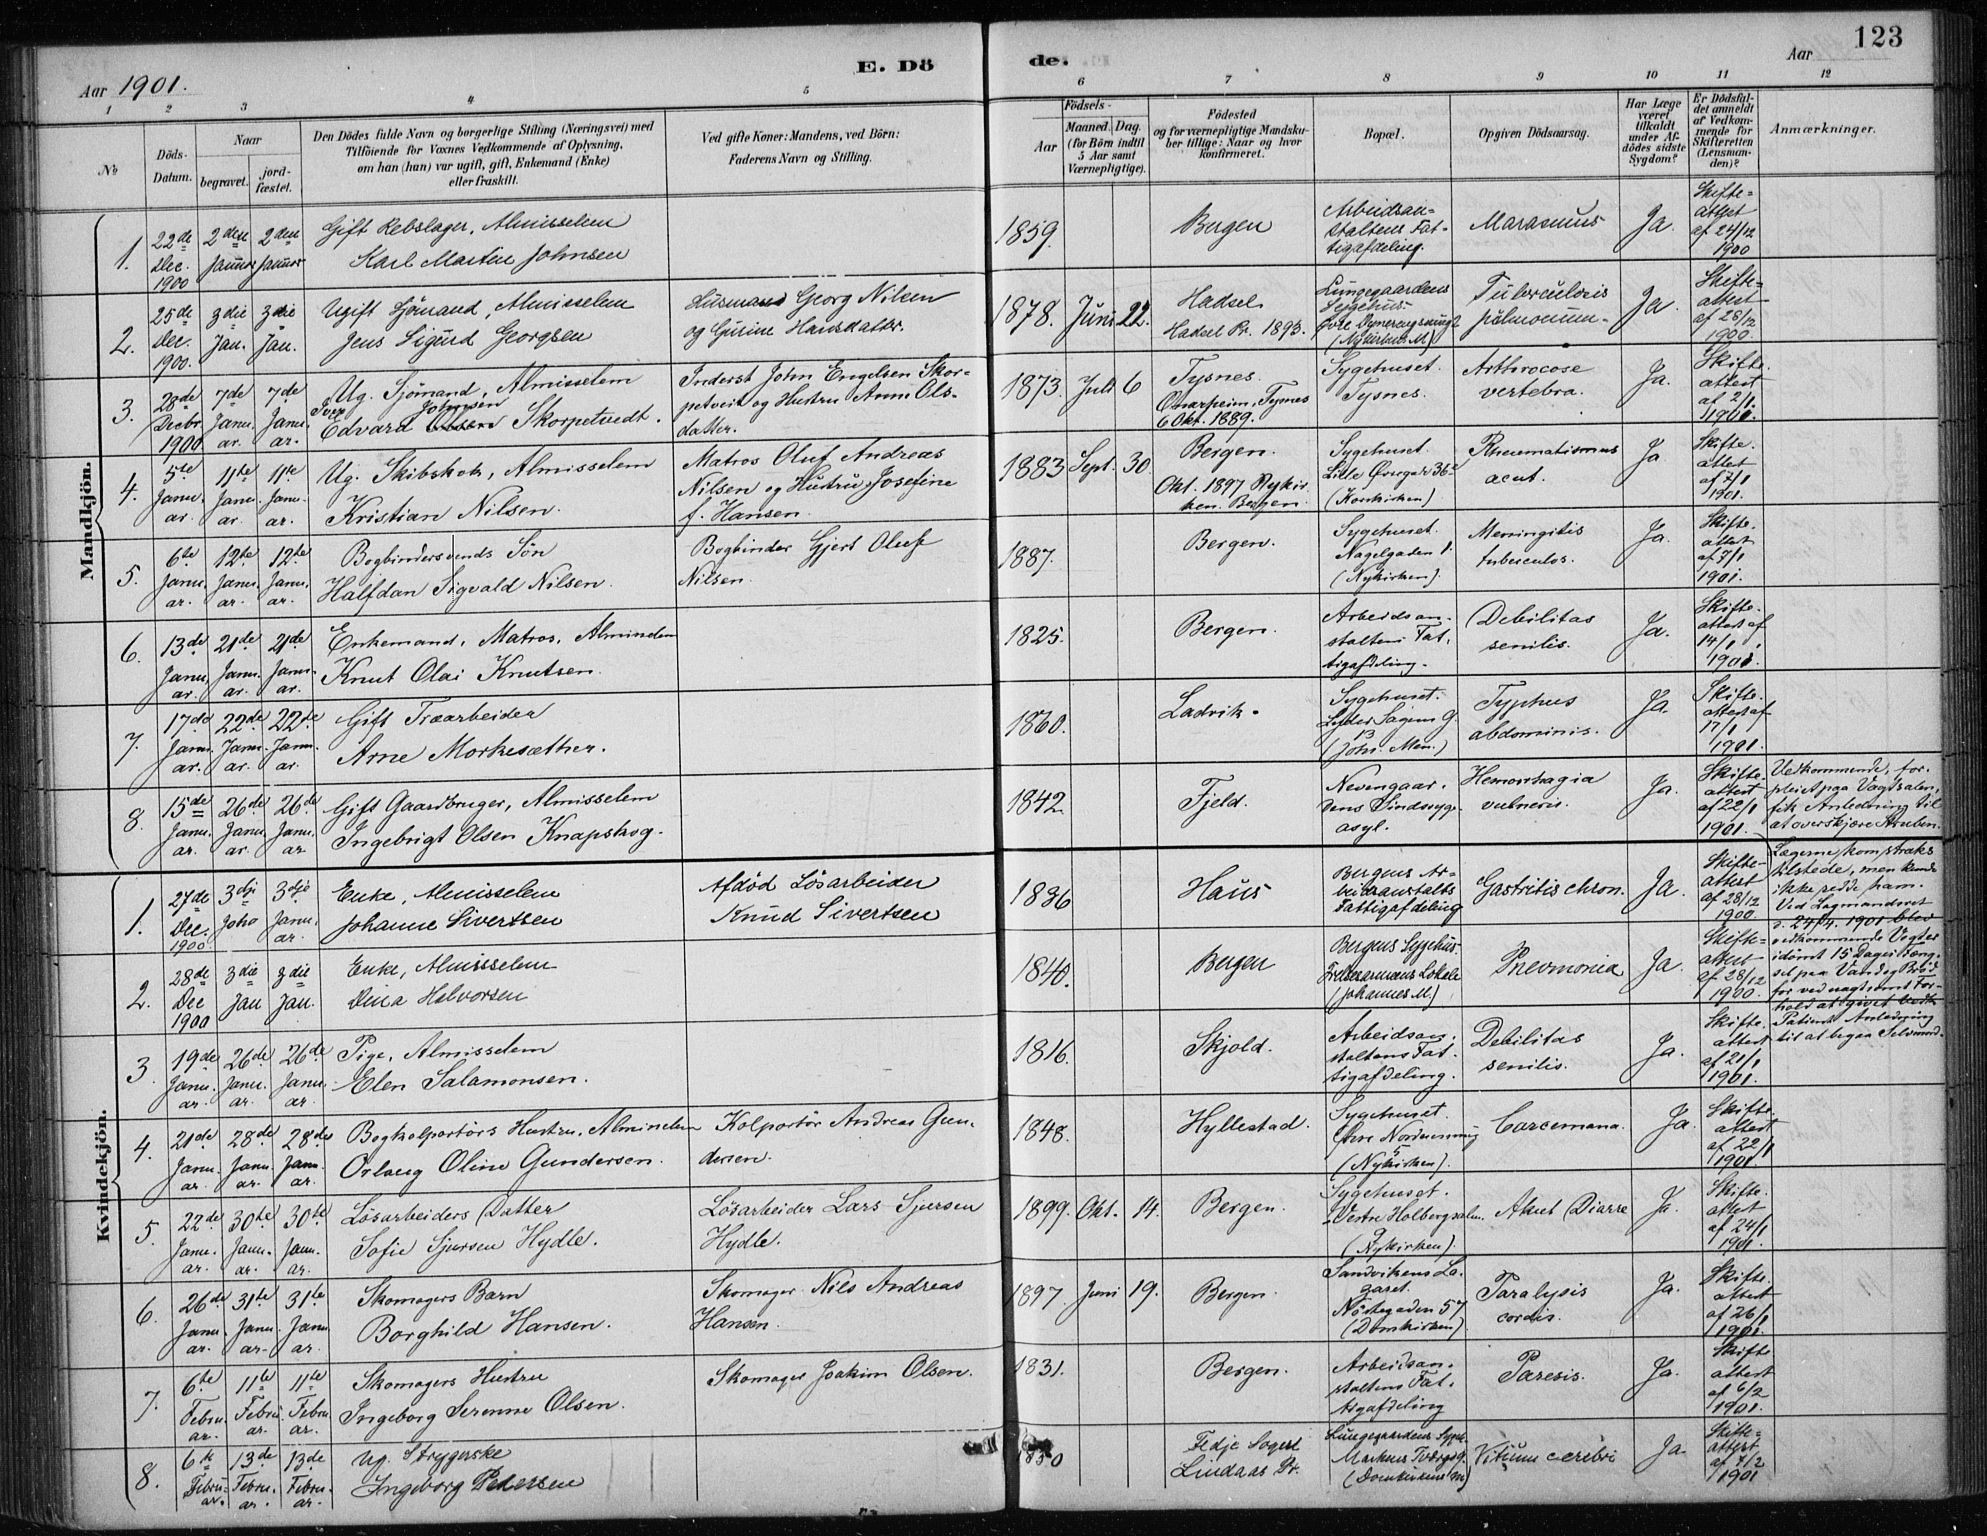 123
E. Dö de.
Aar 1901. Aar
1 2 3 4 5 6 7 8 9 10 11 12
No
Döds-Datum.
Naar
begravet.
jordfæstet.
Den Dödes fulde Navn og borgerlige Stilling (Næringsvei) med
Tilföiende for Voxnes Vedkommende af Oplysning,
om han (hun) var ugift, gift, Enkemand (Enke)
eller fraskilt.
Ved gifte Koner: Mandens, ved Börn:
Faderens Navn og Stilling.
Födsels-
Aar
Maaned. Dag.
(for Börn indtil
5 Aar samt
Værnepligtige).
Födested
og for værnepligtige Mandsku-
ber tillige: Naar og hvor
konfirmeret.
Bopæl.
Opgiven Dödsaarsag.
Har Læge
været
tilkaldt
under Af-
dödes sidste
Sygdom?
Er Dödsfal-
det anmeldt
af Vedkom-
mende for
Skifteretten
(Lensman-
den)?
Anmærkninger.
Mandkjön.
1. 22de Dec. 1900 2den Januar 2den Januar
Gift Rebslager, Almisselem
Karl Martin Johnsen
1859. Bergen
Arbeidsan-
staltens Fat-
tigafdeling.
Marasmus Ja
Skifte-
attest
af 24/12
1900
2. 25de Dec. 1900. 3die Jan. 3die Jan.
Ugift Sjömand, Almisselem
Jens Sigurd Georgsen
Husmand Georg Nilsen
og Gurine Hansdatter.
1878. Juni 22.
Hadsel
Hadsel Pr. 1893.
Lungegaardens
Sygehus.
(Nykirkens M)
Tuberculosis
pulmonum. Ja
Skifte-
attest
af 28/12
1900.
3. 28de Decbr. 1900 7de Janu. ar. 7de Janu. ar.
Ug. Sjömand, Almisselem
Johnsen
Edvard Skorpetvedt.
Inderst John Engelsen Skor-
petveit og Hustru Anna Ols-
datter.
1873. Juli 6
Tysnes.
Onarheim, Tysnes
6 Okt. 1889.
Sygehuset.
Tysnes.
Arthrocose
vertebra. Ja.
Skifte.
attest
af 2/1
1901.
4. 5te Janu. ar. 11te Janu. ar. 11te Janu. ar.
Ug. Skibskok, Almisselem
Kristian Nilsen.
Matros Oluf Andreas
Nilsen og Hustru Josefine
f. Hansen.
1883 Sept. 30.
Bergen.
Okt. 1897 Nykir
ken. Bergen.
Sygehuset.
Lille Øvregade 36
(Korskirken)
Rheumatismus
acut. Ja
Skifte.
attest
af 7/1
1901.
5. 6te Janu. ar. 12te Janu. ar. 12te Janu. ar.
Bogbindersvends Sön
Halfdan Sigvald Nilsen.
Bogbinder Gjert Oluf
Nilsen.
1887. Bergen.
Sygehuset.
Nagelgaden 1.
(Nykirken).
Meningitis
tuberculos. Ja.
Skifte.
attest
af 7/1
1901.
6. 13de Janu. ar. 21de Janu. ar. 21de Janu. ar.
Enkemand, Matros, Alminden
Knut Olai Knutsen.
1825. Bergen.
Arbeidsan.
staltens Fat.
tigafdeling.
Debilitas
senilis. Ja.
Skifte.
attest af
14/1
1901.
7. 17de Janu. ar. 22de Janu. ar. 22de Janu. ar.
Gift Træarbeider
Arne Morkesæther.
1860. Ladvik.
Sygehuset.
Lyder Sagens G.
13
(Joh. Men.)
Typhus
abdominis. Ja
Skifte.
attest af
17/1
1901.
8. 15de Janu. ar. 26de Janu. ar. 26de Janu. ar
Gift Gaardbruger, Almisselem
Ingebrigt Olsen Knapskog.
1842. Fjeld.
Nevengaar.
dens Sindssyg.
asyl.
Hemorrhagia
vulneris. Ja.
Skifte.
attest
af 22/1
1901.
Vedkommende, for.
pleiet paa Vagtsalen,
fik Anledning til
at overskjære Struben.
Lægerne kom straks
tilstede, men kunde
ikke redde ham.
Ved Lagmandsret
d. 24/4. 1901 blev
vedkommende Vogter
idømt 15 Dages Fæng-
sel paa Vand og Bröd
for ved uagtsomt For-
hold at givet
Patient Anledning
til at begaa Selvmord.
Kvindekjön.
1. 27de Dec. 1900 3dje Joho 3dje Janu. ar.
Enke, Almisselem
Johanne Sivertsen
Afdöd Lösarbeider
Knud Sivertsen
1836 Haus
Bergens Ar-
beidsanstalts
Fattigafdeling
Gastritis chron. Ja.
Skifte-
attest
af 28/12
1900.
2. 28de Dec 1900 3die Jan 3die Jan.
Enke, Almisselem
Dina Halvorsen
1840. Bergen
Bergens Sygehus.
Frelsesarmeens Lokale
(Johannes M.)
Pneumonia Ja.
Skifte-
attest
af 28/12
1900.
3. 19de Janu. ar. 26de Janu. ar. 26de Janu. ar.
Pige, Almisselem
Elen Salamonsen.
1816. Skjold.
Arbeidsan.
staltens Fat.
tigafdeling.
Debilitas
senilis. Ja.
Skifte.
attest
af 21/1
1901.
4. 21de Janu. ar. 28de Janu. ar. 28de Janu. ar.
Bogkolportörs Hustru, Almisselem
Orlaug Oline Gundersen.
Kolportör Andreas Gun.
dersen.
1848. Hyllestad.
Sygehuset.
(Nykirken).
Carcemana. Ja.
Skifte.
attest
af 22/1
1901.
5. 22de Janu. ar. 30te Janu. ar. 30te Janu. ar.
Lösarbeiders Datter
Sofie Sjursen Hydle.
Lösarbeider Lars Sjursen
Hydle.
1899. Okt. 14. Bergen.
Sygehuset.
Vestre Holbergsalm.
9
(Nykirken).
Akut Diarre Ja.
Skifte.
attest
af 24/1
1901.
6. 26de Janu. ar. 31te Janu. ar. 31te Janu. ar.
Skomagers Barn
Borghild Hansen.
Skomager Nils Andreas
Hansen.
1897 Juni 19. Bergen.
Sandvikens La.
garet.
Nöstegaden 57
(Domkirken)
Paralysis
cordis. Ja.
Skifte.
attest
af 26/1
1901.
7. 6te Febru. ar. 11te Febru. ar. 11te Febru. ar.
Skomagers Hustru
Ingeborg Serenne Olsen.
Skomager Joakim Olsen.
1831. Bergen.
Arbeidsan.
staltens Fat.
tigafdeling
Paresis. Ja.
Skifte
attest
af 6/2
1901.
8. 6te Febru- ar. 13de Febru- ar. 13de Febru- ar.
Ug. Strygerske
Ingeborg Pedersen
1850
Fedje Sogn
Lindaas Pr.
Lungegaardens Syge.
(Domkirkens M)
Vitium cerebri Ja.
Skifte-
attest
af 7/2
1901